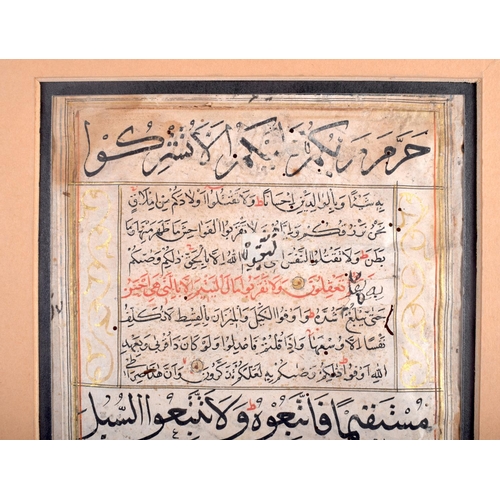 حَرَّمَ رَبُّكُمْ عَلَيْكُمْ اَلَّا تُشْرِكُوا
بِهِ شَيْئًا وَبِالْوَالِدَيْنِ اِحْسَانًا ط وَلَا تَقْتُلُوا اَوْلَادَكُمْ مِنْ اِمْلَاقٍ
نَحْنُ نَرْزُقُكُمْ وَاِيَّاهُمْ وَلَا تَقْرَبُوا الْفَوَاحِشَ مَا ظَهَرَ مِنْهَا وَمَا
بَطَنَ ط وَلَا تَقْتُلُوا النَّفْسَ الَّتِي حَرَّمَ اللهُ اِلَّا بِالْحَقِّ ط ذٰلِكُمْ وَصّٰكُمْ
بِهِ لَعَلَّكُمْ تَعْقِلُونَ وَلَا تَقْرَبُوا مَالَ الْيَتِيمِ اِلَّا بِالَّتِي هِيَ اَحْسَنُ
حَتّٰى يَبْلُغَ اَشُدَّهُ ط وَاَوْفُوا الْكَيْلَ وَالْمِيزَانَ بِالْقِسْطِ لَا نُكَلِّفُ
نَفْسًا اِلَّا وُسْعَهَا ط وَاِذَا قُلْتُمْ فَاعْدِلُوا وَلَوْ كَانَ ذَا قُرْبٰى وَبِعَهْدِ
اللهِ اَوْفُوا ط ذٰلِكُمْ وَصّٰكُمْ بِهِ لَعَلَّكُمْ تَذَكَّرُونَ وَاَنَّ هٰذَا صِرَاطِي
مُسْتَقِيمًا فَاتَّبِعُوهُ ط وَلَا تَتَّبِعُوا السُّبُلَ